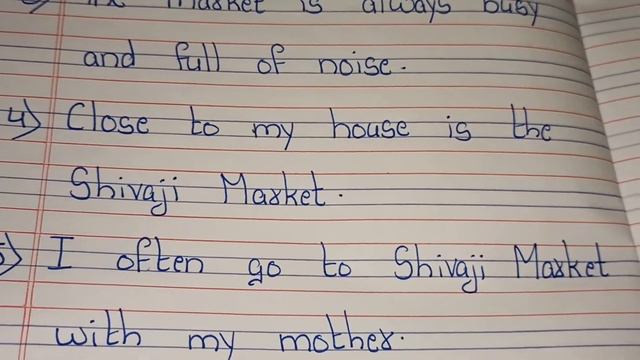 The market is always busy
and full of noise.
4) Close to my house is the
Shivaji Market.
5) I often go to Shivaji Market
with my mother.